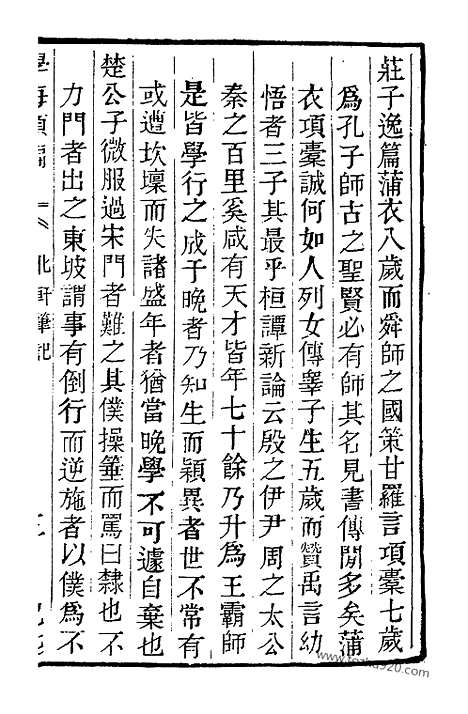 莊子逸篇蒲衣八歲而舜師之國策甘羅言項橐七歲
爲孔子師古之聖賢必有師其名見書傳閒多矣蒲
衣項橐誠何如人列女傳睾子生五歲而贊禹言幼
悟者三子其最乎桓譚新論云殷之伊尹周之太公
秦之百里奚咸有天才皆年七十餘乃升爲王霸師
是皆學行之成于晚者乃知生而穎異者世不常有
或遭坎壈而失諸盛年者猶當晚學不可遽自棄也
楚公子微服過宋門者難之其僕操箠而罵曰隸也不
力門者出之東坡謂事有倒行而逆施者以僕爲不
北軒筆記
www.fozhu920.com